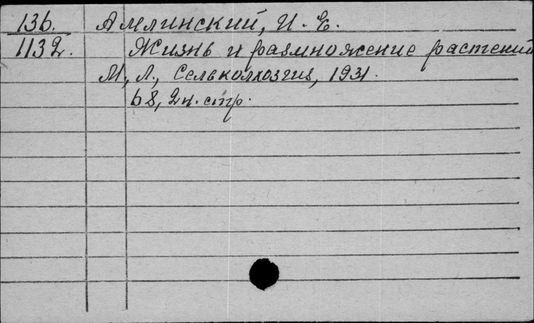 136. Амлинский, И. Е.
1132. Жизнь и размножение растений
М, Л., Сельколхозгиз, 1931.
68, 2 н. стр.